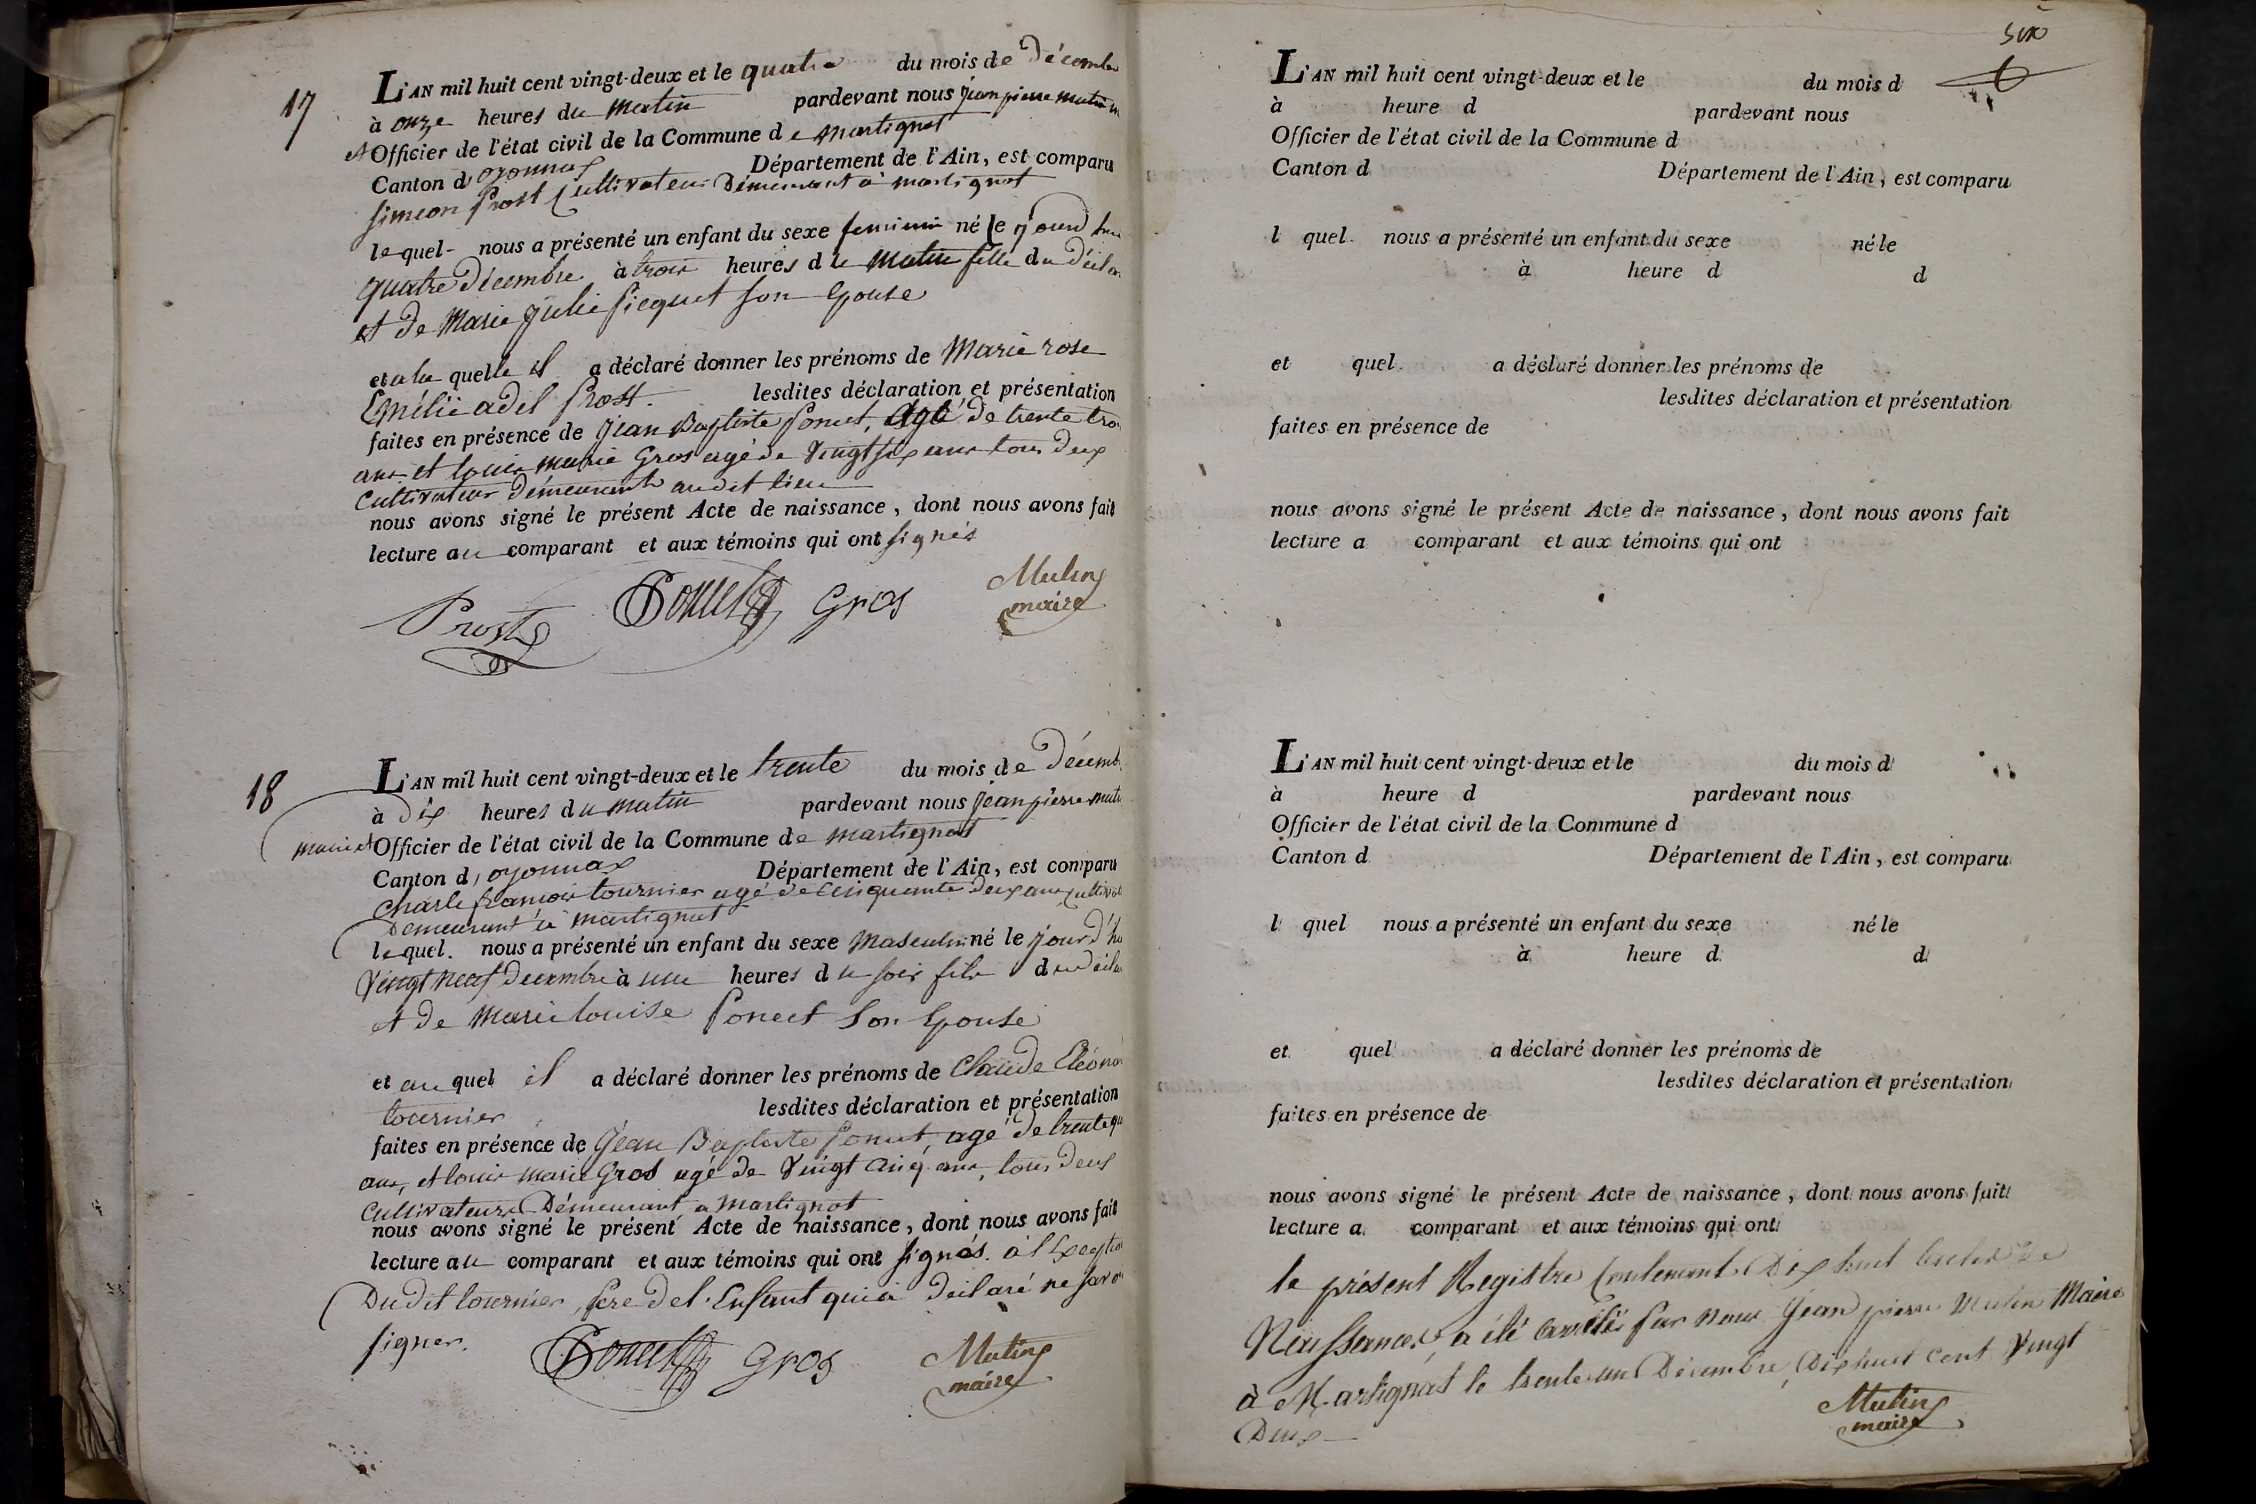 17
L'AN mil huit cent vingt-deux et le quatre du mois de Décembre
à onze heures du matin pardevant nous jean pierre mutin
et Officier de l'état civil de la Commune de martignat
Canton d'oyonnax Département de l'Ain, est comparu
simeon Prost Cultivateur Démeurant à martignat
lequel nous a présenté un enfant du sexe feminin né le jourd'hui
quatre Décembre à trois heures du matin fille du Déclar
et de Marie julie picquet son Epouse
et a la quelle il a déclaré donner les prénoms de Marie rose
Emélie adel Prost. lesdites déclaration et présentation
faites en présence de jean Baptiste Poncet, Agé de trente trois
ans et louis marie Gros agé de Vingt six ans tous deux
Cultivateur Démeurant audit lieu
nous avons signé le présent Acte de naissance, dont nous avons fait
lecture au comparant et aux témoins qui ont signés
Prost Poncet Gros Mutin
maire
18
L'AN mil huit cent vingt-deux et le trente du mois de Décemb
à Dix heures du matin pardevant nous jean pierre mutin
maire et Officier de l'état civil de la Commune de martignat
Canton d'oyonnax Département de l'Ain, est comparu
Charle françois tournier agé de Cinquante deux ans Cultivat
Demeurant à martignat
lequel nous a présenté un enfant du sexe Masculin né le jourd'hu
Vingt neuf Decembre à une heures du soir fils du Décla
et de Marie louise Poncet Son Epouse
et au quel il a déclaré donner les prénoms de Claude Eléonor
tournier lesdites déclaration et présentation
faites en présence de jean Baptiste Poncet, agé de trente qu
ans, et louis marie Gros agé de Vingt Cinq ans, tous deux
Cultivateurs Démeurant a Martignat
nous avons signé le présent Acte de naissance, dont nous avons fait
lecture au comparant et aux témoins qui ont signés. à l'Exception
Dudit tournier, père de l'Enfant qui a déclaré ne savoir
signer.
Poncet Gros Mutin
maire
six
L'AN mil huit cent vingt-deux et le du mois d
à heure d pardevant nous
Officier de l'état civil de la Commune d
Canton d Département de l'Ain, est comparu
l quel nous a présenté un enfant du sexe né le
à heure d d
et quel a déclaré donner les prénoms de
lesdites déclaration et présentation
faites en présence de
nous avons signé le présent Acte de naissance, dont nous avons fait
lecture a comparant et aux témoins qui ont
L'AN mil huit cent vingt-deux et le du mois d
à heure d pardevant nous
Officier de l'état civil de la Commune d
Canton d Département de l'Ain, est comparu
l quel nous a présenté un enfant du sexe né le
à heure d d
et quel a déclaré donner les prénoms de
lesdites déclaration et présentation
faites en présence de
nous avons signé le présent Acte de naissance, dont nous avons fait
lecture a comparant et aux témoins qui ont
le présent Registre Contenant Dix huit Actes de
Naissances, a été arrêté par nous jean pierre Mutin Maire
à Martignat le trente un Décembre, Dix huit cent Vingt
Deux
Mutin
maire